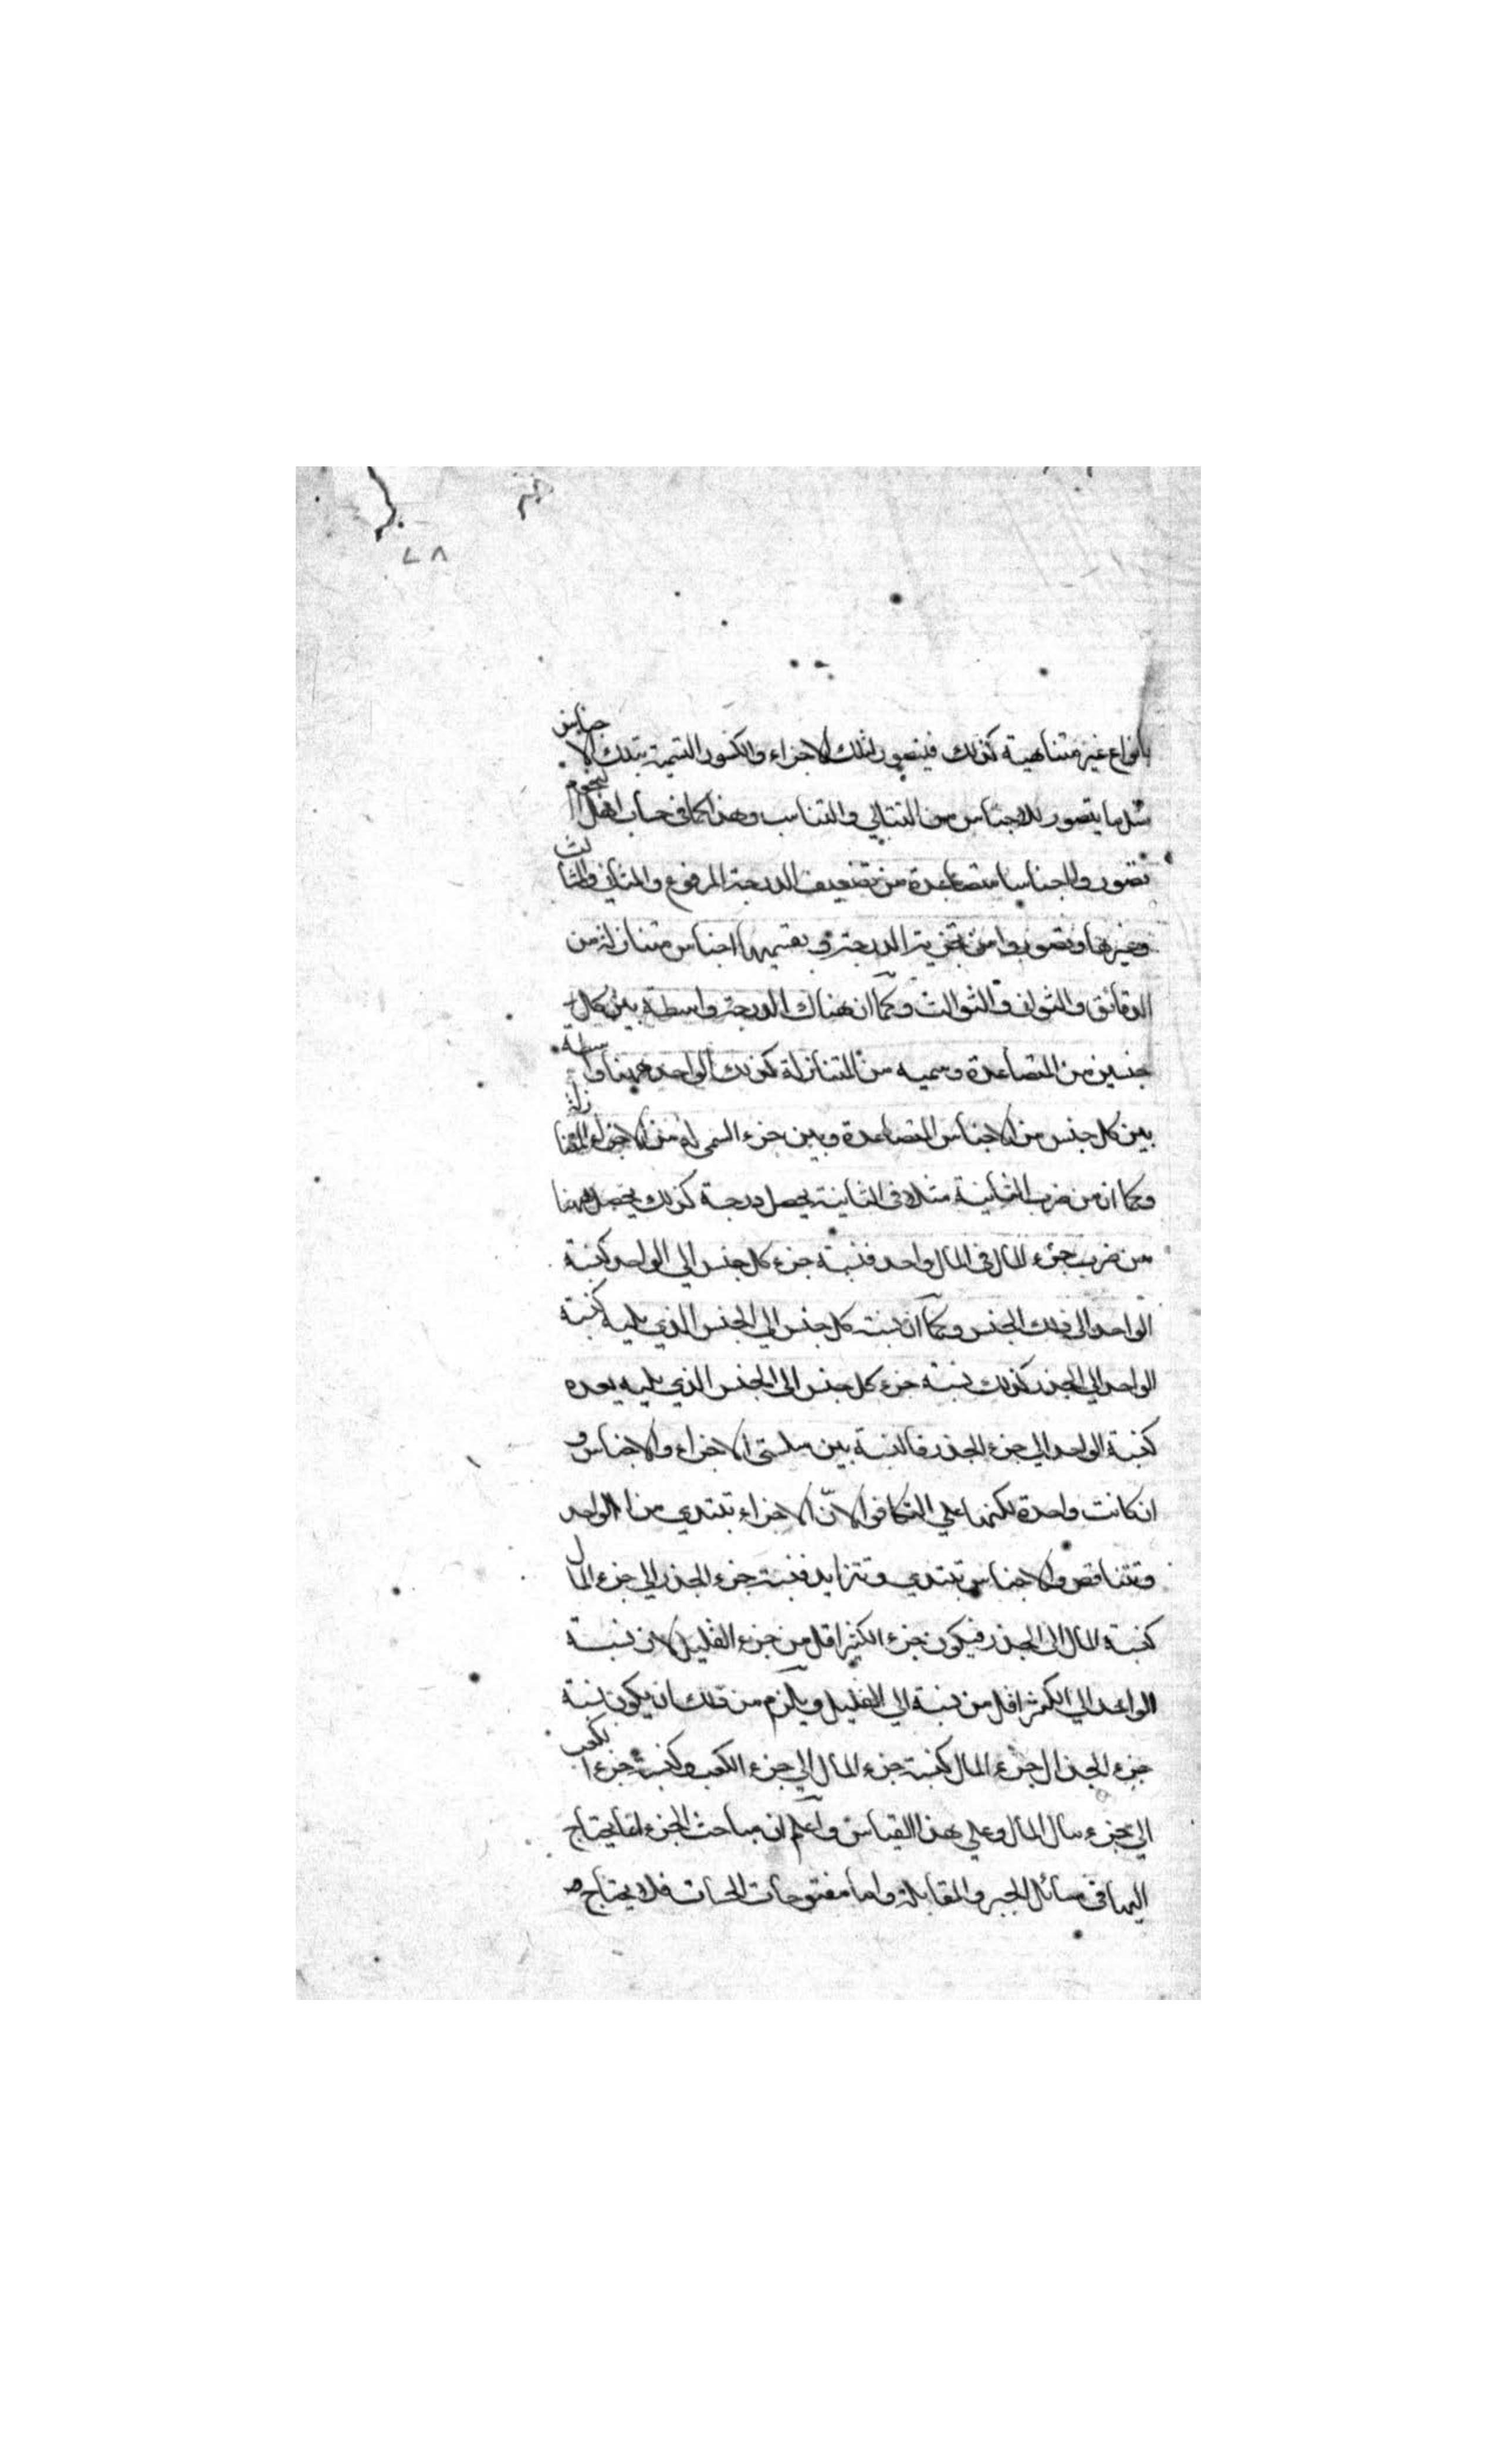 ٧٨
بانواع غير متناهية كذلك فيتصور لتلك الاجزاء والكسور السمية بتلك الاجناس
مثل ما يتصور للاجناس من التتالي والتناسب وهذا كما في حساب اهل النجوم
تصوروا اجناسا متصاعدة من تضعيف الدرجة المرفوع والمثاني والمثالث
وغيرها وتصوروا من تجزية الدرجة وتقسيمها اجناس متنازلة من
الدقائق والثواني والثوالث وكما ان هناك الدرجة واسطة بين كل
جنسين من المتصاعدة وسميه من المتنازلة كذلك الواحد ههنا واسطة
بين كل جنس من الاجناس المتصاعدة وبين جزء السمي له من الاجزاء المتنازلة
وكما ان من ضرب الثانية مثلا في الثانية يحصل درجة كذلك يحصل ههنا
من ضرب جزء المال في المال واحد فنسبة جزء كل جنس الى الواحد كنسبة
الواحد الى ذلك الجنس وكما ان نسبة كل جنس الي الجنس الذي يليه كنسبة
الواحد الي الجذر كذلك نسبة جزء كل جنس الى الجنس الذي يليه بعده
كنسبة الواحد الي جزء الجذر فالنسبة بين سلستى الاجزاء والاجناس و
ان كانت واحدة لكنها علي التكافوا لانّ الاجزاء تبتدي من الواحد
وتتناقص والاجناس تبتدي وتتزايد فنسبة جزء الجذر الي جزء المال
كنسبة المال الى الجذر فيكون جزء الكثير اقل من جزء القليل لان نسبة
الواحد الي الكثير اقل من نسبة الي القليل ويلزم من ذلك ان يكون نسبة
جزء الجذر ال جزء المال كنسبة جزء المال الي جزء الكعب وكنسبة جزء الكعب
الي جزء مال المال وعلي هذا القياس واعلم ان مباحث الجزء انما يحتاج
اليها في مسائل الجبر والمقابلة واما مفتوحات الحساب فلا يحتاج